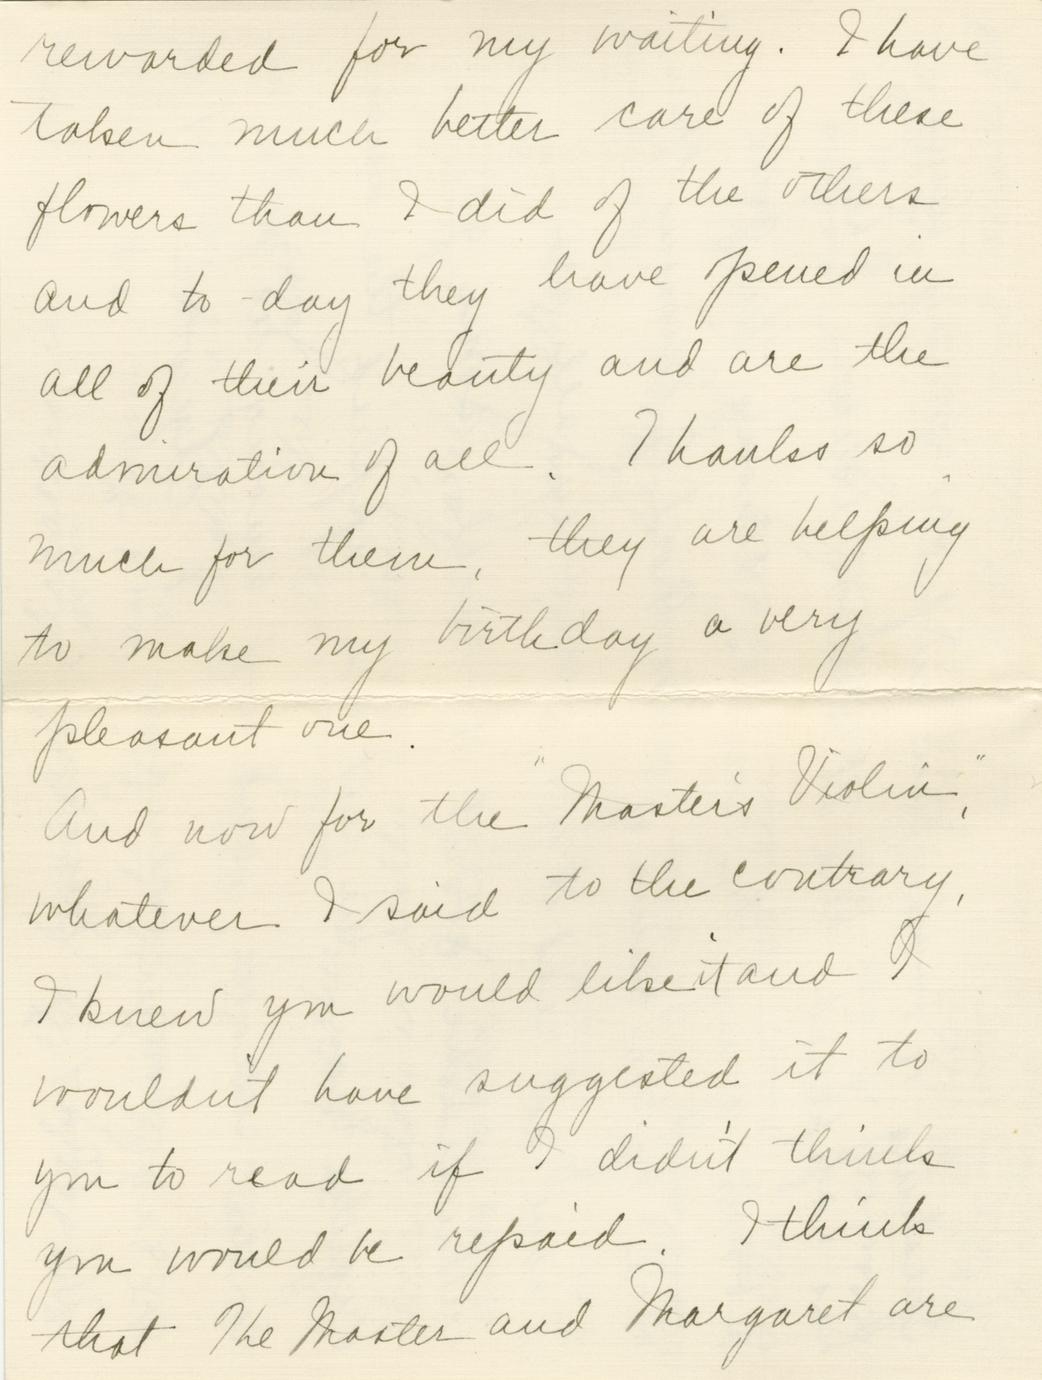 rewarded for my waiting. I have
taken much better care of these
flowers than I did of the others
and to-day they have opened in
all of their beauty and are the
admiration of all. Thanks so
much for them, they are helping
to make my birthday a very
pleasant one.
And now for the "Master's Violin",
whatever I said to the contrary,
I knew you would like it and I
wouldn't have suggested it to
you to read if I didn't think
you would be repaid. I think
that The Master and Margaret are